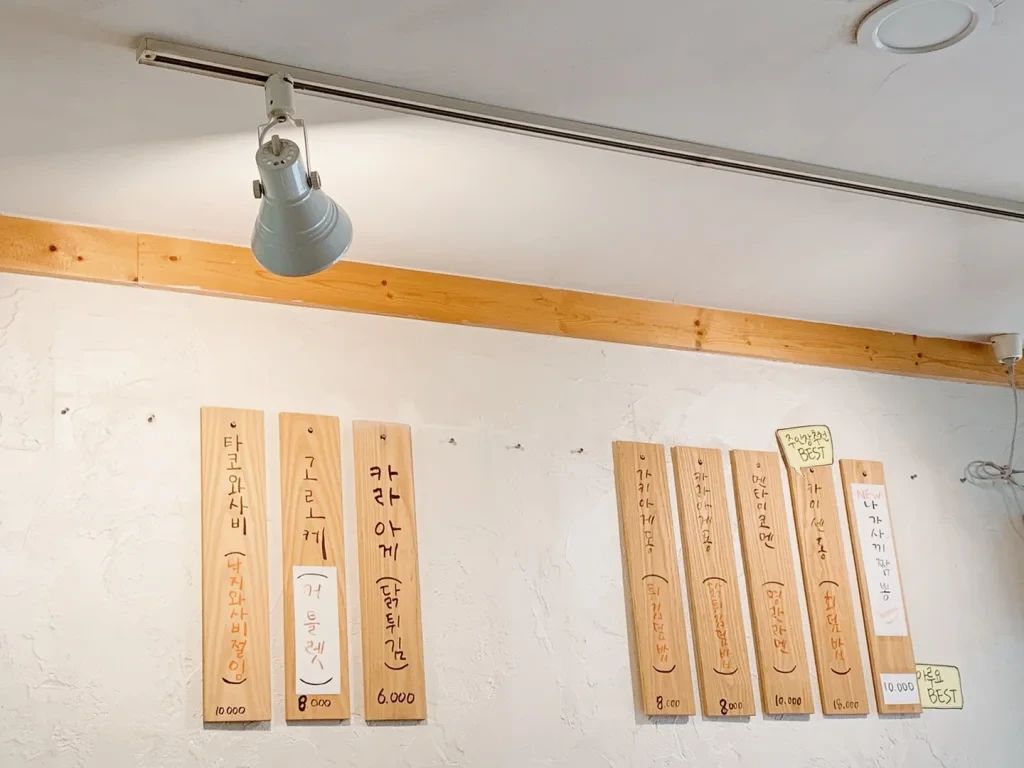 타코와사비
(낙지와사비절임)
10.000
고로케
(커틀렛)
8000
카라아게
(닭튀김)
6.000
카키아게동
(튀김덮밥)
8.000
카라아게동
(닭튀김덮밥)
8.000
멘타이코멘
(명란라멘)
10.000
주인장추천
BEST
카이센동
(회덮밥)
NEW
나가사끼짬뽕
10.000
BEST